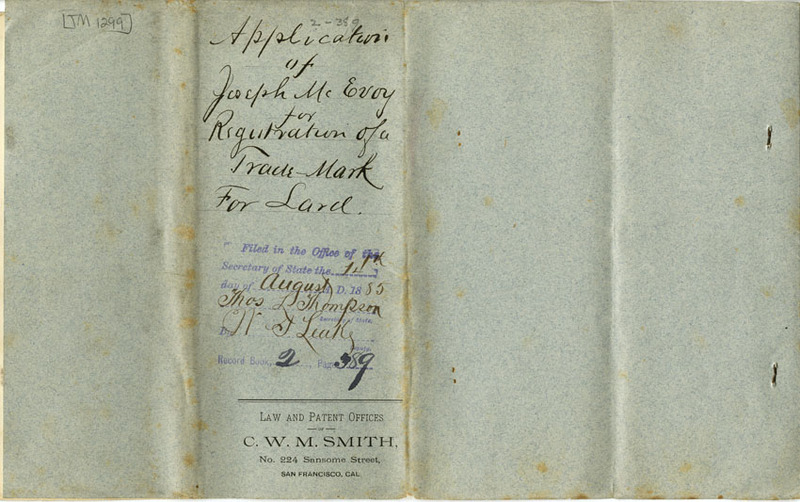 [TM 1299]
2-389
Application
of
Joseph McEvoy
for
Registration of a
Trade-Mark
For Lard.
Filed in the Office of the
Secretary of State the
day of August A.D. 1885
Thos L Thompson
Secretary of State.
W. F Leake
Deputy.
Record Book, 2 Page 389
LAW AND PATENT OFFICES
—OF—
C. W. M. SMITH,
No. 224 Sansome Street,
SAN FRANCISCO, CAL.